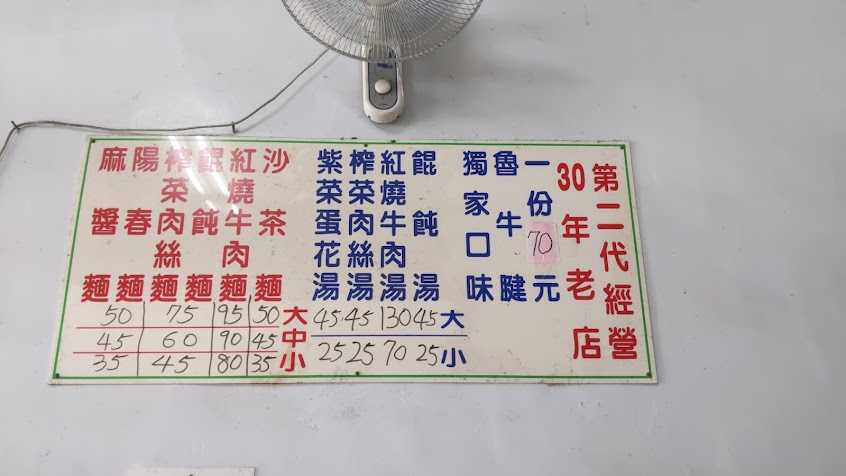 第二代經營
30年老店
一份70元
魯牛腱
獨家口味
餛飩湯
紅燒牛肉湯
榨菜肉絲湯
紫菜蛋花湯
沙茶麵
紅燒牛肉麵
餛飩麵
榨菜肉絲麵
陽春麵
麻醬麵
50 75 95 50 大 45 45 130 45 大
45 60 90 45 中
35 45 80 35 小 25 25 70 25 小